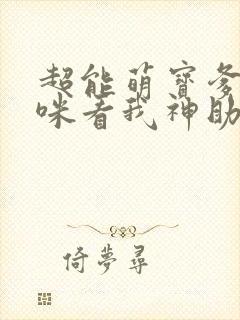 超能萌寶爹
咪看我神助
倚夢尋